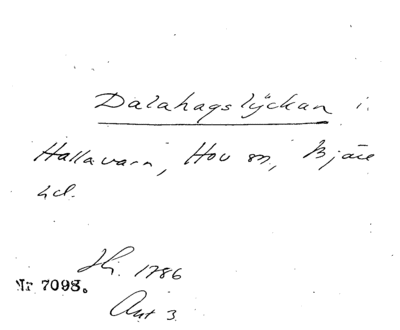 Dalahagslyckan i.
Hallavara, Hov sn, Bjäre
hd.
Hi. 1786
Nr 7098.
Akt 3